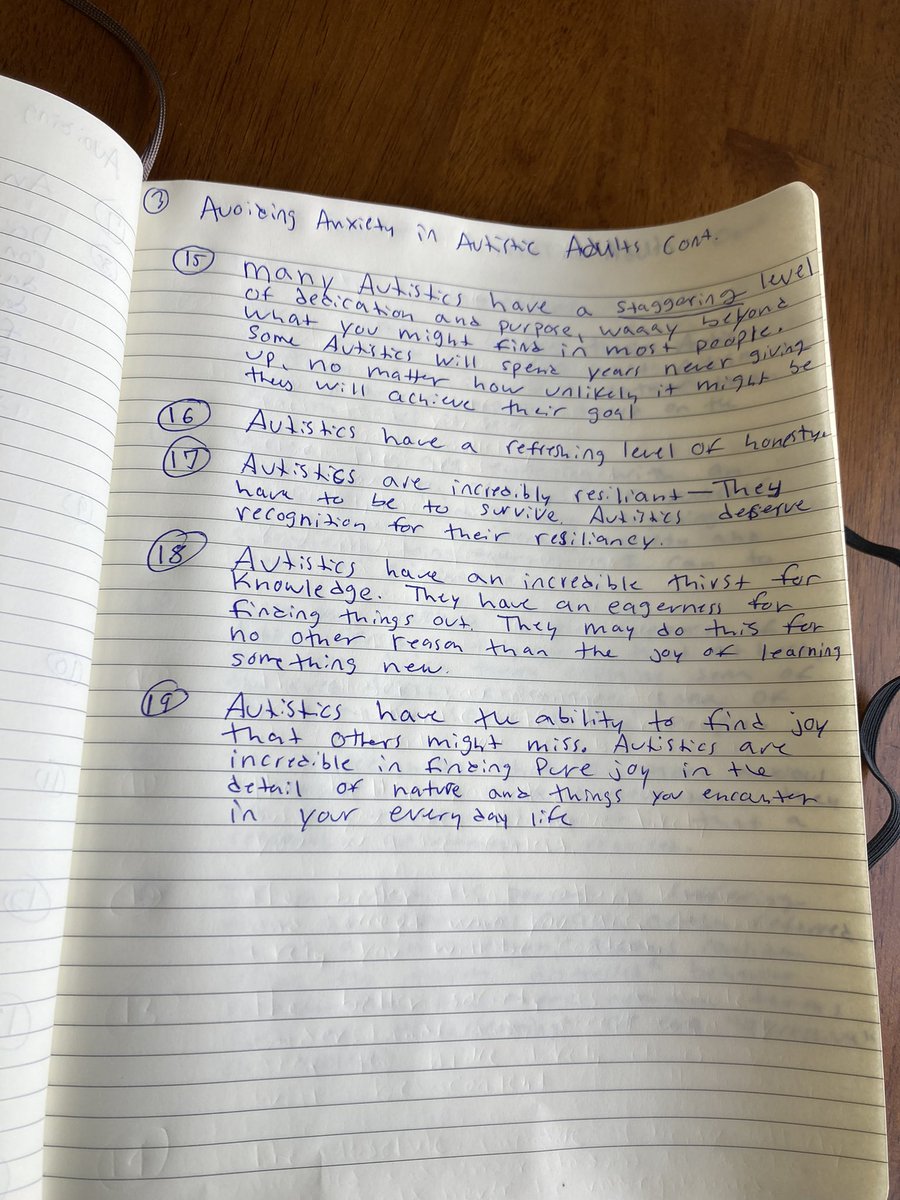 ③ Avoiding Anxiety in Autistic Adults Cont.
⑮ many Autistics have a staggering level
of dedication and purpose, waaay beyond
what you might find in most people.
Some Autistics will spend years never giving
up, no matter how unlikely it might be
they will achieve their goal
⑯ Autistics have a refreshing level of honesty
⑰ Autistics are incredibly resiliant — They
have to be to survive. Autistics deserve
recognition for their resiliancy.
⑱ Autistics have an incredible thirst for
Knowledge. They have an eagerness for
finding things out. They may do this for
no other reason than the joy of learning
something new.
⑲ Autistics have the ability to find joy
that others might miss. Autistics are
incredible in finding Pure joy in the
detail of nature and things you encounter
in your everyday life